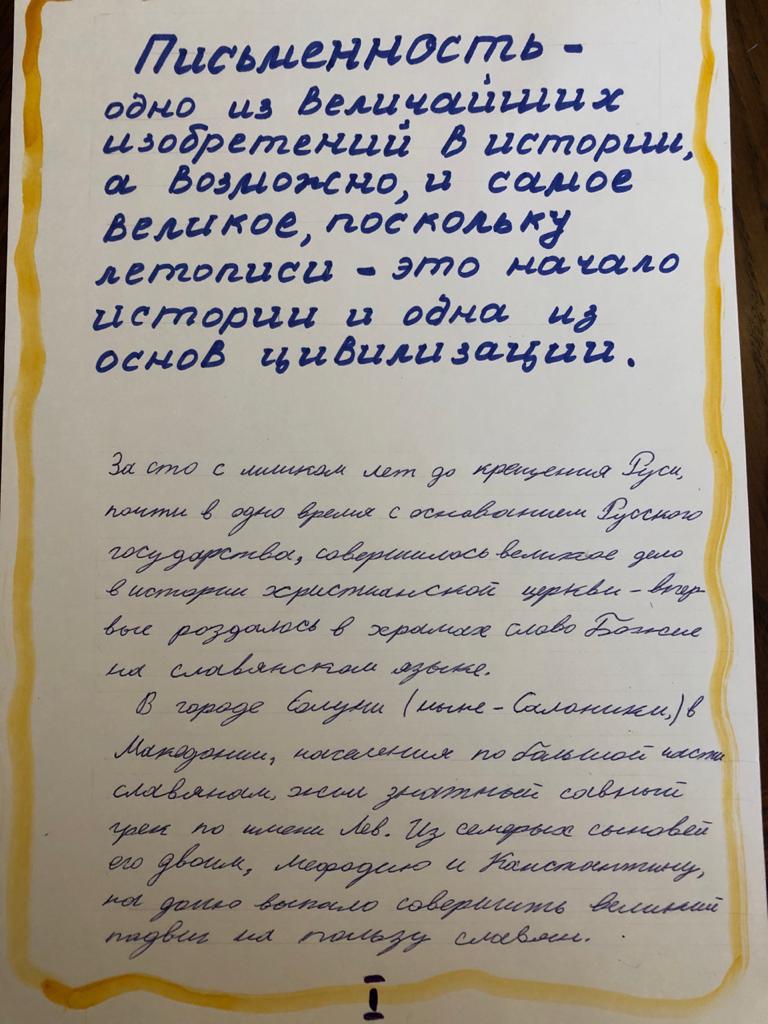 Письменность -
одно из величайших
изобретений в истории,
а возможно, и самое
великое, поскольку
летописи - это начало
истории и одна из
основ цивилизации.
За сто с лишком лет до крещения Руси,
почти в одно время с основанием Русского
государства, совершилось великое дело
в истории христианской церкви - впер-
вые роздалось в храмах слово Божие
на славянском языке.
В городе Солуни (ныне - Салоники,) в
Македонии, населения по большой части
славянам, жил знатный савный
грек по имени Лев. Из семерых сыновей
его двоим, Мефодию и Константину,
на долю выпало совершить великий
подвиг на пользу славян.
I